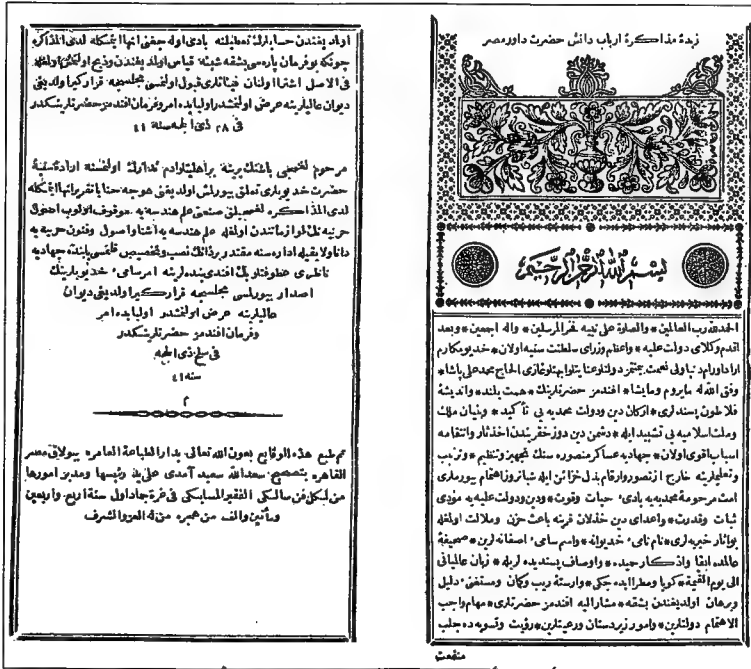 زبدهٔ مذاكرهٔ ارباب دانش حضرت داور مصر
بسم الله الرحمن الرحيم
الحمد لله رب العالمين * والصلوة على نبيه فخر المرسلين * واله اجمعين * وبعد
اقدم وكلاى دولت عليه * واعظم وزراى سلطنت سنيه اولان * خديو مكارم
الحاج محمد على پاشا *
وفق الله له مايروم ومايشا * افندمز حضرتلرينك * همت بلند * وانديشهٔ
فلاطون پسندلرى * اركان دين ودولت محمديه يى تأكيد * وبنيان ملك
وملت اسلاميه يى تشييد ايله * دشمن دين دوزخ قريندن اخذ ثار وانتقامه
اسباب اقوى اولان * جهاديه عساكر منصوره سنك تجهيز وتنظيم * وترتيب
وتعليملرينه خارج از تصور وارقام بذل خزائن ايله شبانروز اهتمام بيورملرى
امت مرحومهٔ محمديه يه بادىء حيات وقوت * ودين ودولت عليه يه مؤدى
ثبات وقدرت * واعداى دين خذلان قرينه باعث حزن وملالت اولغله
بو اثار خيريه لرى * نام نامىء خديوانه * واسم سامىء اصفانه لرين * صحيفهٔ
عالمده ابقا واذكار حميده * واوصاف پسنديده لريله * زبان عالميانى
الى يوم القيمة * كويا ومطرا ايده جكى * وارستهٔ ريب وكمان ومستغنىء دليل
وبرهان اولديغندن بشقه * مشاراليه افندمز حضرتلرى * مهام واجب
الاهتمام دولتلرين * وامور زيردستان ورعيتلرين * رؤيت وتسويه ده جلب
منفعت
اولديغندن حسابلرك تعطيلنه بادى اوله جغى انها ايتمكله لدى المذاكره
چونكه بو فرمان پاره سى بشقه شيئه قياس اولديغندن
فى الاصل اشترا اولنان فيئاتلرى قبول اولنمسى مجلسجه قراركير اولديغى
ديوان عاليلرينه عرض اولنمشدر اولبابده امر وفرمان افندمز حضرتلرينكدر
فى ٢٨ ذى الحجه سنة ٤١
مرحوم پاشانك يرينه بر اهليتلو ادم تدارك اولنمسنه ارادهٔ سنيهٔ
حضرت خديويلرى تعلق بيورلمش اولديغنى خوجه جنابلرى تقرير انها ايتمكله
لدى المذاكره تحصيلى صنعتى علم هندسه يه موقوف اولوب اصول
حربيه نك لوازماتندن اولغله علم هندسه يه اشنا واصول وفنون حربيه يه
دانا ولايقيله اداره سنه مقتدر بر ذاتك نصب وتخصيص قلنمسى بابنده جهاديه
ناظرى عطوفتلو بك افندى بنده لرينه امر سامىء خديويلرينك
اصدار بيورلمسى مجلسجه قراركير اولديغى ديوان
عاليلرينه عرض اولنمشدر اولبابده امر
وفرمان افندمز حضرتلرينكدر
فى سلخ ذى الحجه
سنه ٤١
تم طبع هذه الوقايع بعون الله تعالى بدار الطباعة العامره ببولاق مصر
القاهره بتصحيح سعد الله سعيد آمدى على يد رئيسها ومدير امورها
من لكل فن سالكى الفقير المسابكى فى غرة جماد اول سنة اربع واربعين
ومأتين والف من هجرة من له العز والشرف